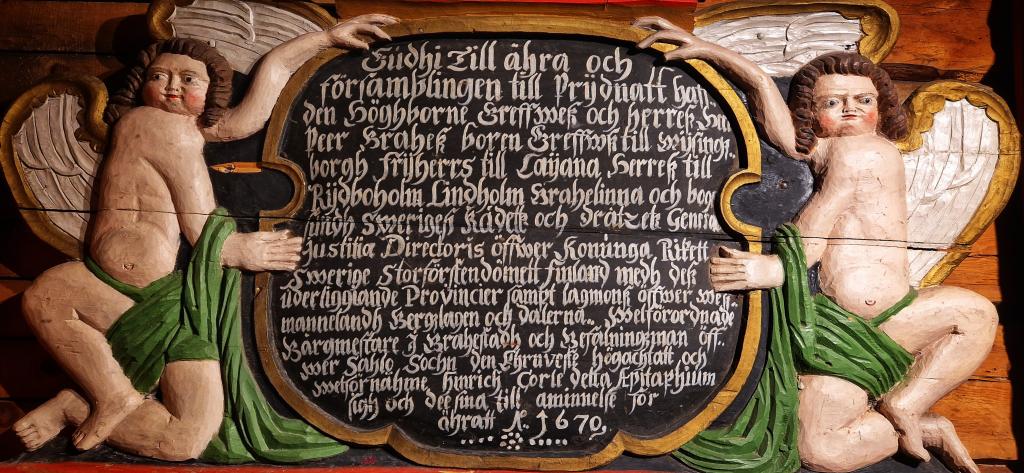 Gudhi Till ähra och
församblingen till Prÿdnatt haf:
den Höghborne Greffweß och herreß Herr
Peer Braheß boren Greffwß till Wÿsingz:
borgh frijherrs till Caÿana Herreß till
Rijdboholm Lindholm Brahelinna och bog
sundh Sweriges Rådeß och dråtzetz Genera
Justitia Directoris öffwer Konunga Rikett
Swerige Storförstendomett finland medh deß
underliggiande Provincier sampt lagmonß öffwer west
mannelandh Bergslagen och dalerna. Welförordnade
Bårgmestare J Brahestadh och Befälningzman öff:
wer Sahlo Sochn den Ehruveste Högachtatt och
welfornähme hinrich Corte detta Epitaphium
sigh och dee sina till åminnelse för
ähratt A. 1670.